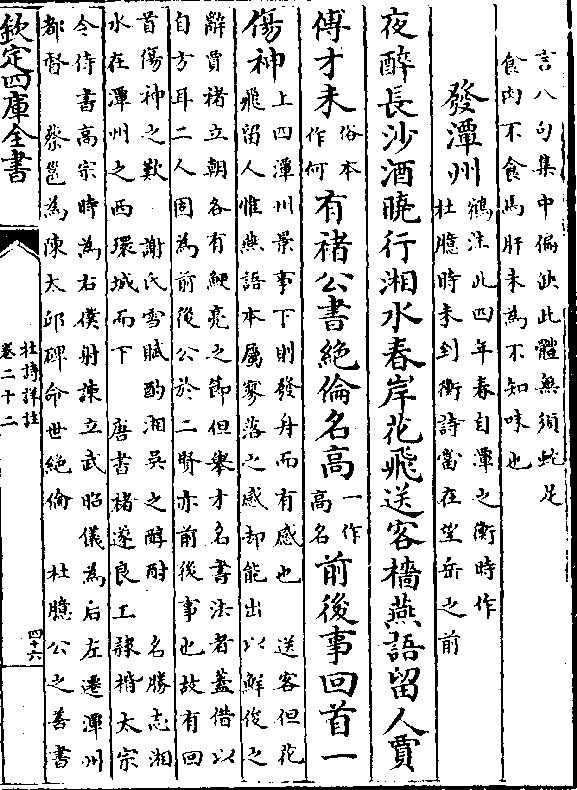 言八句集中偏缺此體無須蛇足
食肉不食馬肝未為不知味也
發潭州 鶴注此四年春自潭之衡時作
杜臆時未到衡詩當在望岳之前
夜醉長沙酒曉行湘水春岸花飛送客檣燕語留人賈
傅才未 俗本作何 有褚公書絶倫名高 一作高名 前後事回首一
傷神 上四潭州景事下則發身而有感也 送客但花
飛留人惟燕語本屬寥落之感却能出以鮮俊之
辭賈褚立朝各有鯁亮之節但舉才名書法者蓋借以
自方耳二人固為前後公於二賢亦前後事也故有回
首傷神之歎 謝氏雪賦酌湘吳之醇酎 名勝志湘
水在潭州之西環城而下 唐書褚遂良工隸楷太宗
令侍書高宗時為右僕射諫立武昭儀為后左遷潭州
都督 蔡邕為陳太邱碑命世絶倫 杜臆公之善書
欽定四庫全書
杜詩詳註
卷二十二
四十六